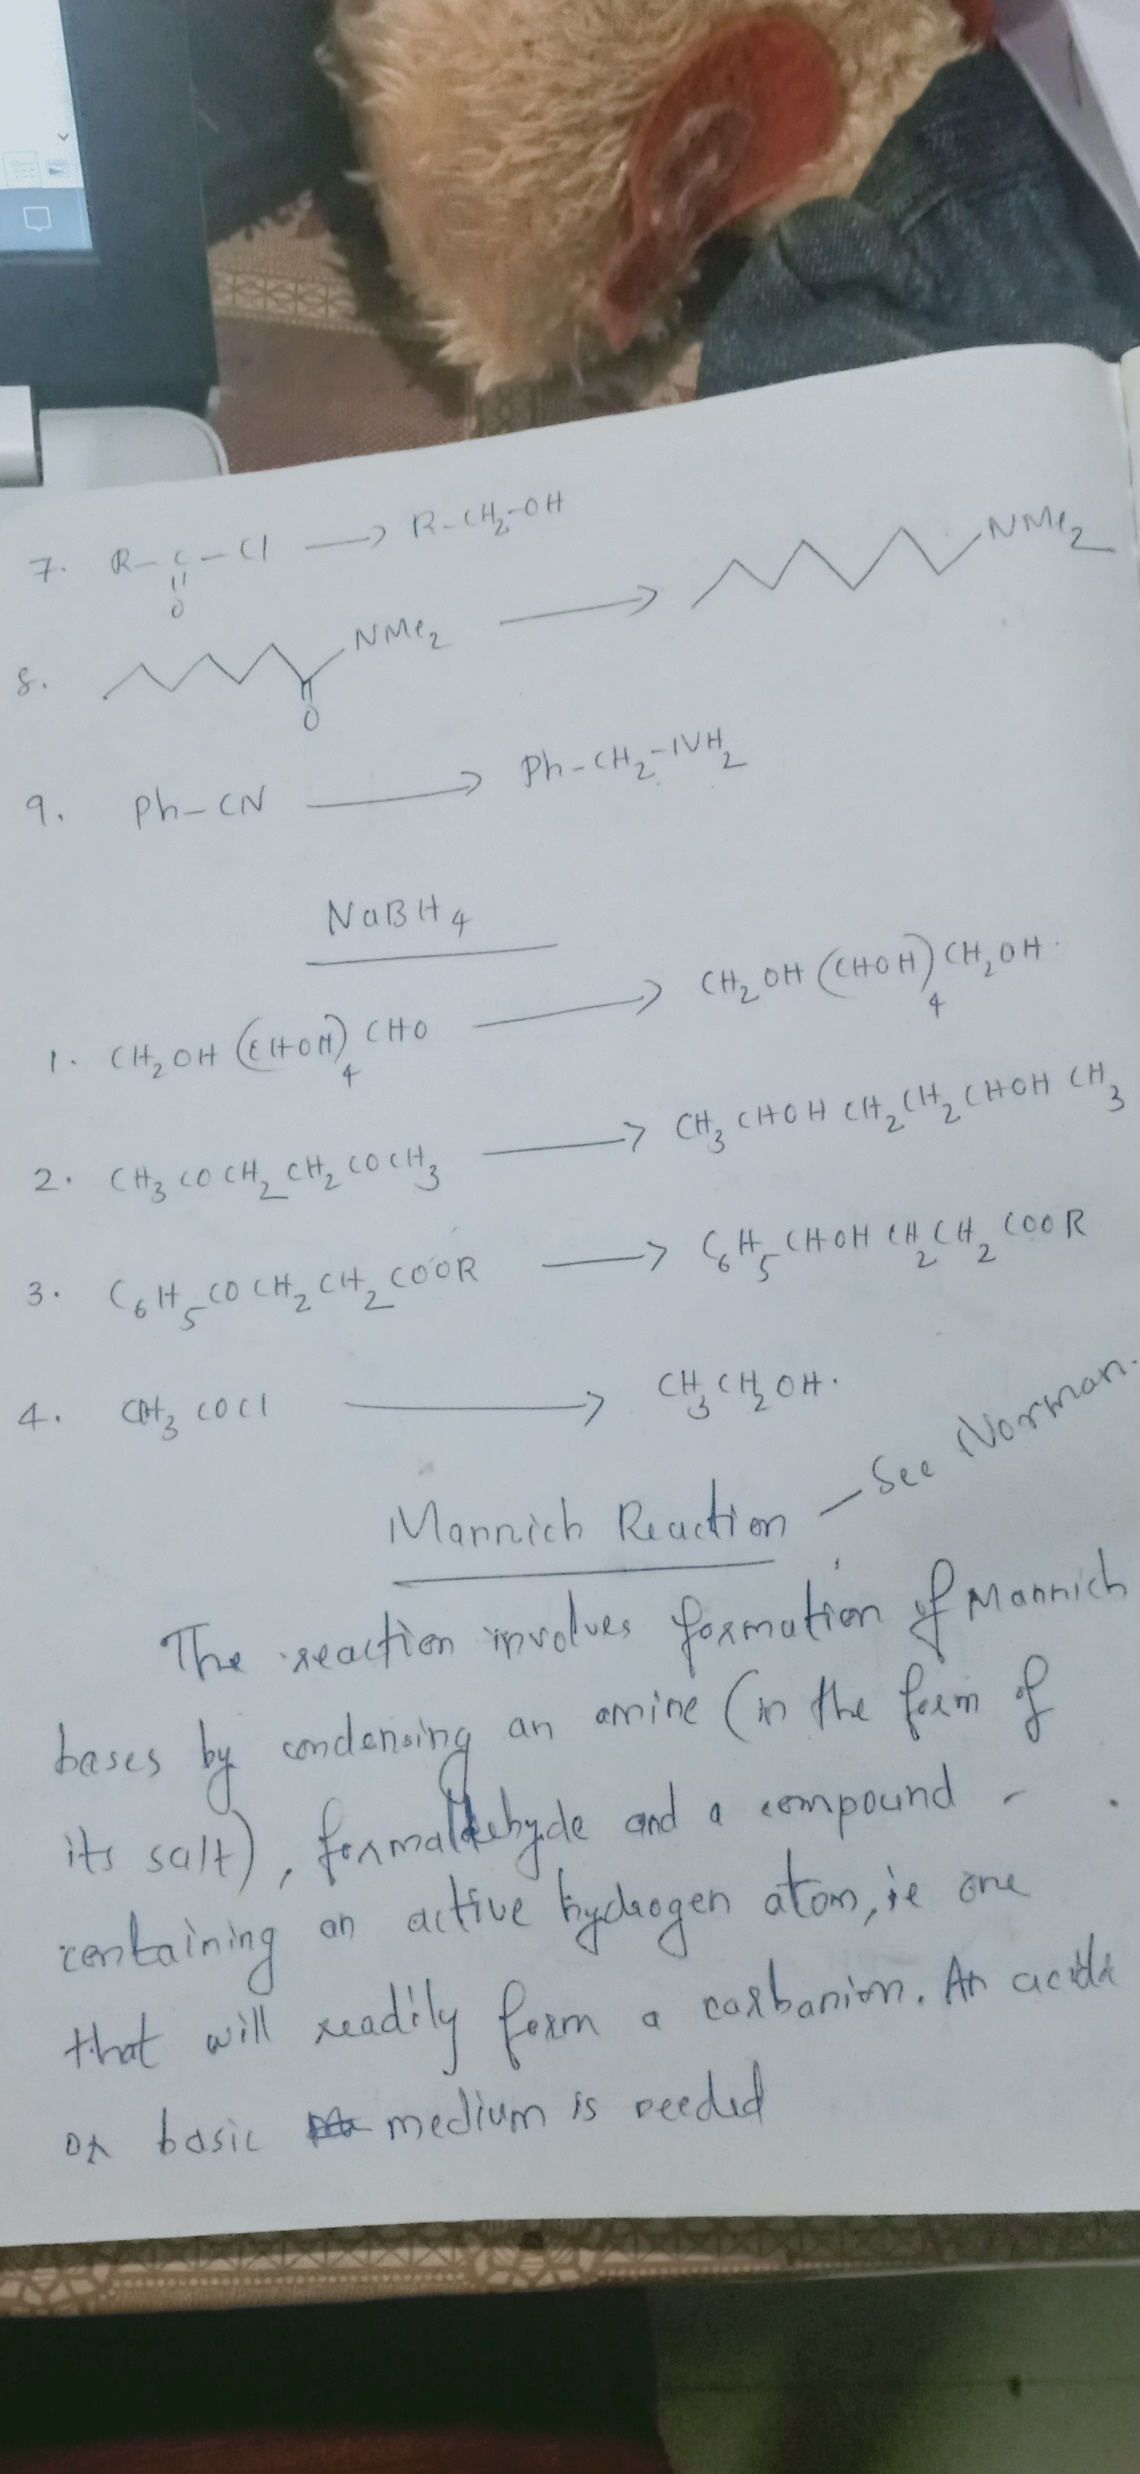 7. R-C-Cl → R-CH2-OH
||
O
8. NMe2 → NMe2
O
9. Ph-CN → Ph-CH2-NH2
NaBH4
1. CH2OH (CHOH)4 CHO → CH2OH (CHOH)4 CH2OH.
2. CH3 CO CH2 CH2 CO CH3 → CH3 CHOH CH2 CH2 CHOH CH3
3. C6H5 CO CH2 CH2 COOR → C6H5 CHOH CH2 CH2 COOR
4. CH3 COCl → CH3 CH2 OH.
Mannich Reaction - See Norman.
The reaction involves formation of Mannich
bases by condensing an amine (in the form of
its salt), formaldehyde and a compound -
containing an active hydrogen atom, ie one
that will readily form a carbanion. An acidic
or basic medium is needed